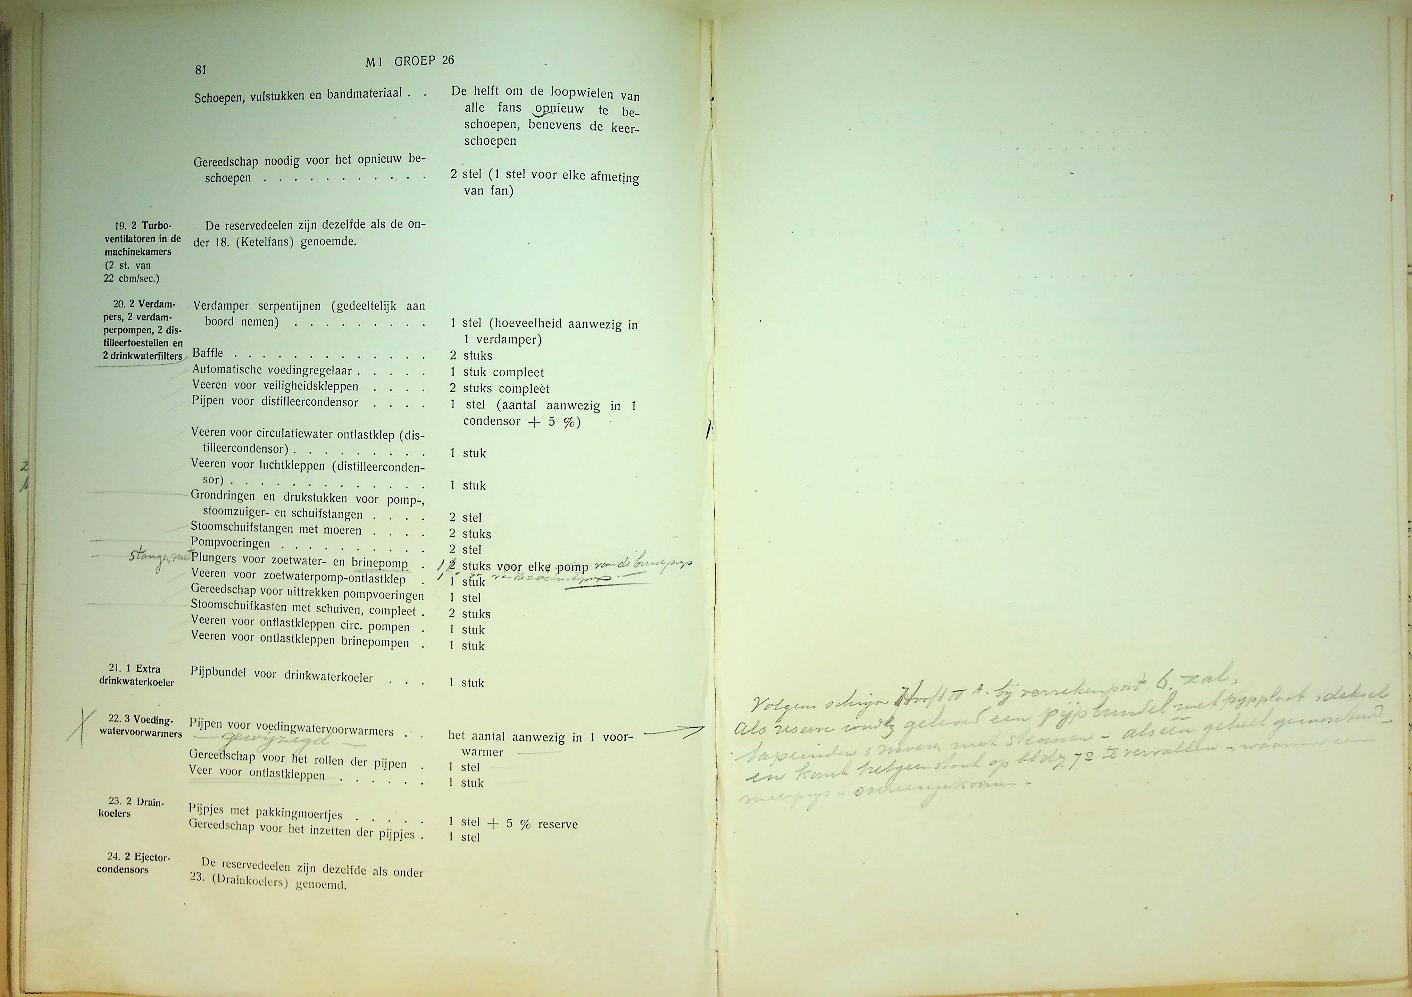 81
M I GROEP 26
Schoepen, vulstukken en bandmateriaal . .
De helft om de loopwielen van
alle fans opnieuw te be-
schoepen, benevens de keer-
schoepen
Gereedschap noodig voor het opnieuw be-
schoepen . . . . . . . . . . .
2 stel (1 stel voor elke afmeting
van fan)
19. 2 Turbo-
ventilatoren in de
machinekamers
(2 st. van
22 cbm/sec.)
De reservedeelen zijn dezelfde als de on-
der 18. (Ketelfans) genoemde.
20. 2 Verdam-
pers, 2 verdam-
perpompen, 2 dis-
tilleertoestellen en
2 drinkwaterfilters
Verdamper serpentijnen (gedeeltelijk aan
boord nemen) . . . . . . . . .
1 stel (hoeveelheid aanwezig in
1 verdamper)
Baffle . . . . . . . . . . . . .
2 stuks
Automatische voedingregelaar . . . . .
1 stuk compleet
Veeren voor veiligheidskleppen . . . .
2 stuks compleet
Pijpen voor distilleercondensor . . . .
1 stel (aantal aanwezig in 1
condensor + 5 %)
Veeren voor circulatiewater ontlastklep (dis-
tilleercondensor) . . . . . . . . .
1 stuk
Veeren voor luchtkleppen (distilleerconden-
sor) . . . . . . . . . . . . .
1 stuk
Grondringen en drukstukken voor pomp-,
stoomzuiger- en schuifstangen . . . .
2 stel
Stoomschuifstangen met moeren . . . .
2 stuks
Pompvoeringen . . . . . . . . . .
2 stel
Stangen met Plungers voor zoetwater- en brinepomp .
2 stuks voor elke pomp
Veeren voor zoetwaterpomp-ontlastklep .
1 stuk
Gereedschap voor uittrekken pompvoeringen
1 stel
Stoomschuifkasten met schuiven, compleet .
2 stuks
Veeren voor ontlastkleppen circ. pompen .
1 stuk
Veeren voor ontlastkleppen brinepompen .
1 stuk
21. 1 Extra
drinkwaterkoeler
Pijpbundel voor drinkwaterkoeler . . .
1 stuk
22. 3 Voeding-
watervoorwarmers
Pijpen voor voedingwatervoorwarmers . .
gewijzigd
het aantal aanwezig in 1 voor-
warmer
Gereedschap voor het rollen der pijpen .
1 stel
Veer voor ontlastkleppen . . . . . .
1 stuk
23. 2 Drain-
koelers
Pijpjes met pakkingmoertjes . . . . .
1 stel + 5 % reserve
Gereedschap voor het inzetten der pijpjes .
1 stel
24. 2 Ejector-
condensors
De reservedeelen zijn dezelfde als onder
23. (Drainkoelers) genoemd.
Volgens
Als reserve wordt geleverd een pijpbundel met pijpplaat deksel
als één geheel gemonteerd
en komt hetgeen staat op bldz. 72 te vervallen
overeengekomen